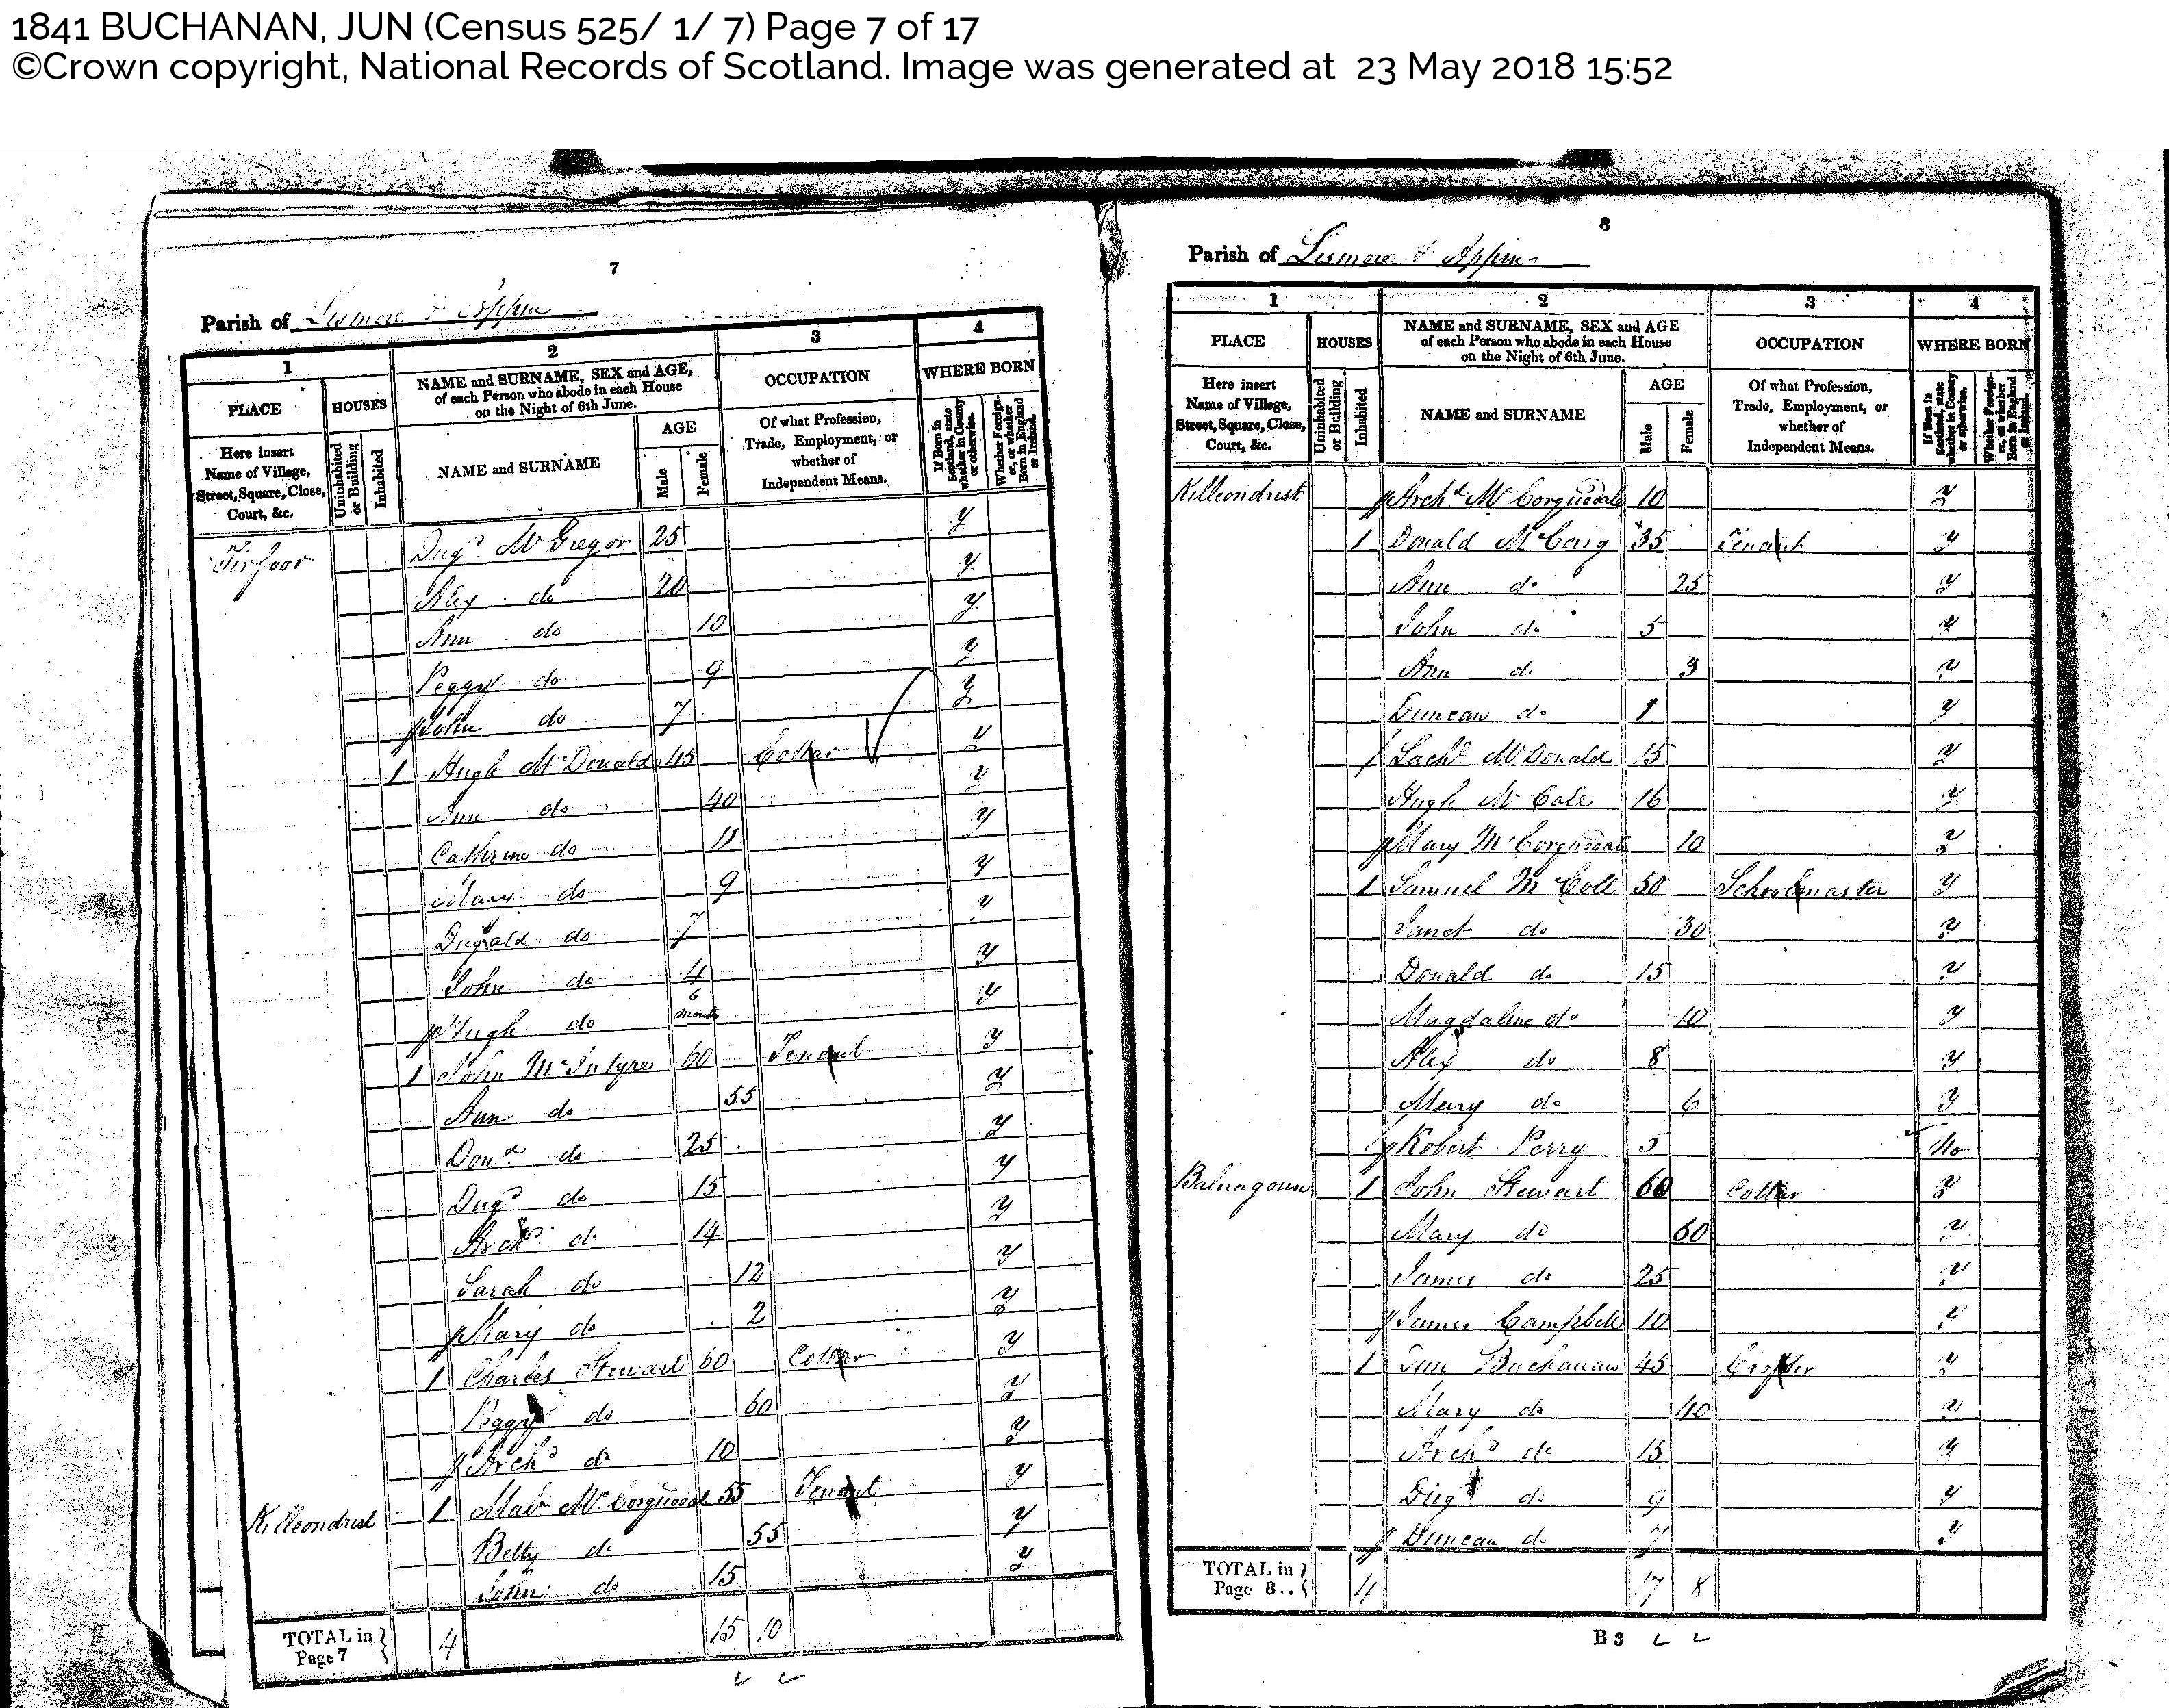 1841 BUCHANAN, JUN (Census 525/ 1/ 7) Page 7 of 17
©Crown copyright, National Records of Scotland. Image was generated at 23 May 2018 15:52
7
Parish of Lismore & Appin
1 2 3 4
PLACE HOUSES NAME and SURNAME, SEX and AGE, of each Person who abode in each House on the Night of 6th June. OCCUPATION WHERE BORN
Here insert Name of Village, Street, Square, Close, Court, &c. Uninhabited or Building Inhabited NAME and SURNAME AGE Male Female Of what Profession, Trade, Employment, or whether of Independent Means. If Born in Scotland, state whether in County or otherwise. Whether Foreigner, or whether Born in England or Ireland.
Tirfoor Dugd McGregor 25 y
Alex do 20 y
Ann do 10 y
Peggy do 9 y
John do 7 y
1 Hugh McDonald 45 Cottar y
Ann do 40 y
Catherine do 11 y
Mary do 9 y
Dugald do 7 y
John do 4 y
Hugh do 6 months y
1 John McIntyre 60 Tenant y
Ann do 55 y
Dond do 25 y
Dugd do 15 y
Archd do 14 y
Sarah do 12 y
Mary do 2 y
1 Charles Stewart 60 Cottar y
Peggy do 60 y
Archd do 10 y
Killeondrist 1 Malm McCorquodal 55 Tenant y
Betty do 55 y
John do 15 y
TOTAL in Page 7 4 15 10
8
Parish of Lismore & Appin
1 2 3 4
PLACE HOUSES NAME and SURNAME, SEX and AGE of each Person who abode in each House on the Night of 6th June. OCCUPATION WHERE BORN
Here insert Name of Village, Street, Square, Close, Court, &c. Uninhabited or Building Inhabited NAME and SURNAME AGE Male Female Of what Profession, Trade, Employment, or whether of Independent Means. If Born in Scotland, state whether in County or otherwise. Whether Foreigner, or whether Born in England or Ireland.
Killeondrist Archd McCorquodale 10 y
1 Donald McCaig 35 Tenant y
Ann do 25 y
John do 5 y
Ann do 3 y
Duncan do 1 y
Lachn McDonald 15 y
Hugh McCole 16 y
Mary McCorquodale 10 y
1 Samuel McColl 50 Schoolmaster y
Janet do 30 y
Donald do 15 y
Magdaline do 10 y
Alex do 8 y
Mary do 6 y
Robert Perry 5 No
Balnagoun 1 John Stewart 60 Cottar y
Mary do 60 y
James do 25 y
James Campbell 10 y
1 Jun Buchanan 45 Crofter y
Mary do 40 y
Archd do 15 y
Dug do 9 y
Duncan do 7 y
TOTAL in Page 8.. 4 17 8
B 3